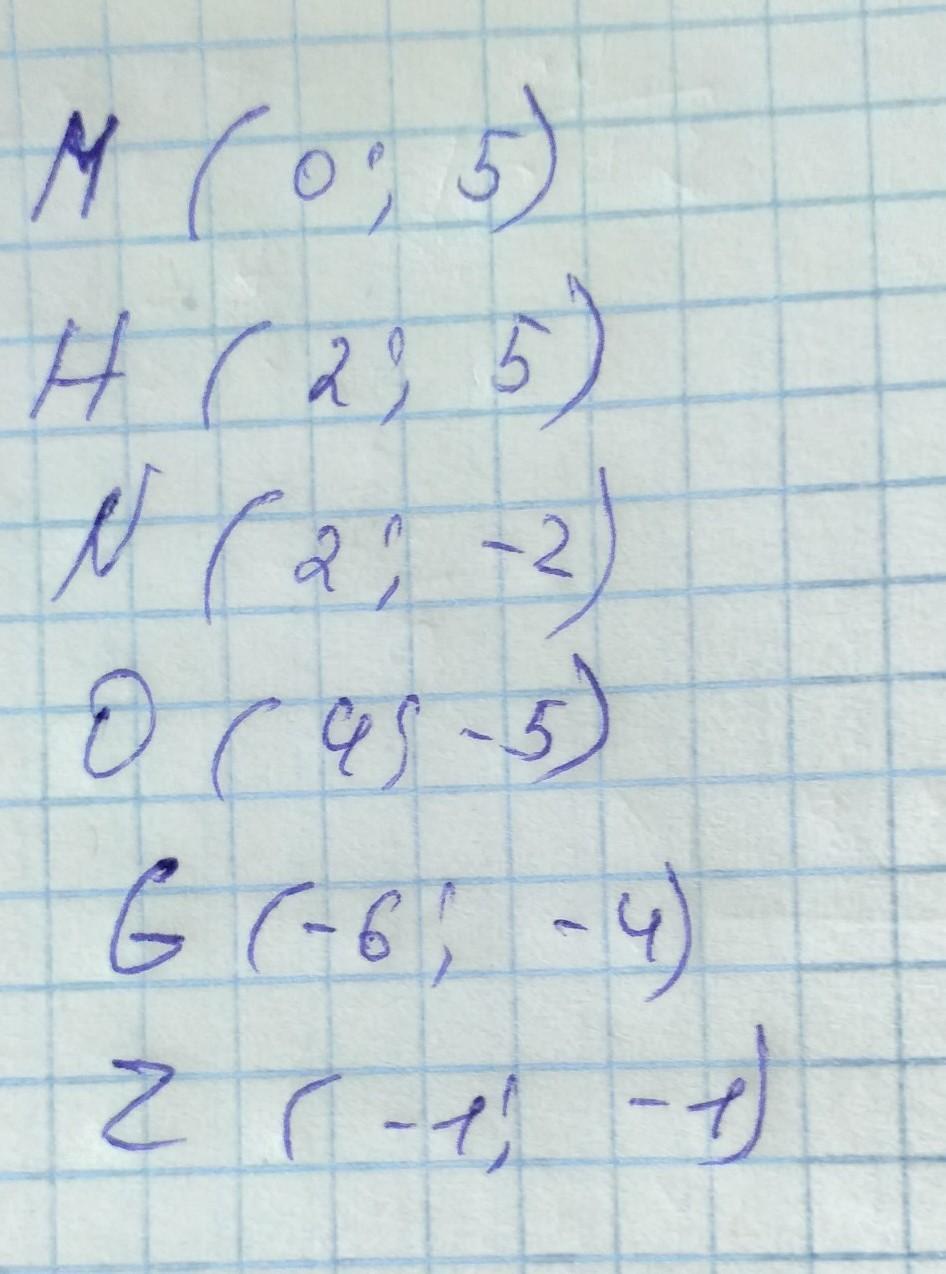 M ( 0; 5)
H ( 2; 5)
N ( 2; -2)
O ( 4; -5)
G (-6; -4)
Z ( -1; -1)